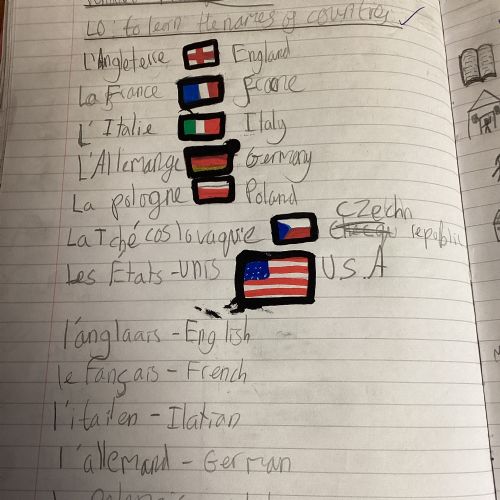 LO: to learn the names of countries
L'Angleterre England
La France france
L'Italie Italy
L'Allemange Germany
La pologne Poland
La Tchécoslovaquie Czechn republic
Les États-unis U.S.A
l'anglaars - English
le fançais - French
l'itailen - Ilatian
l'allemand - German